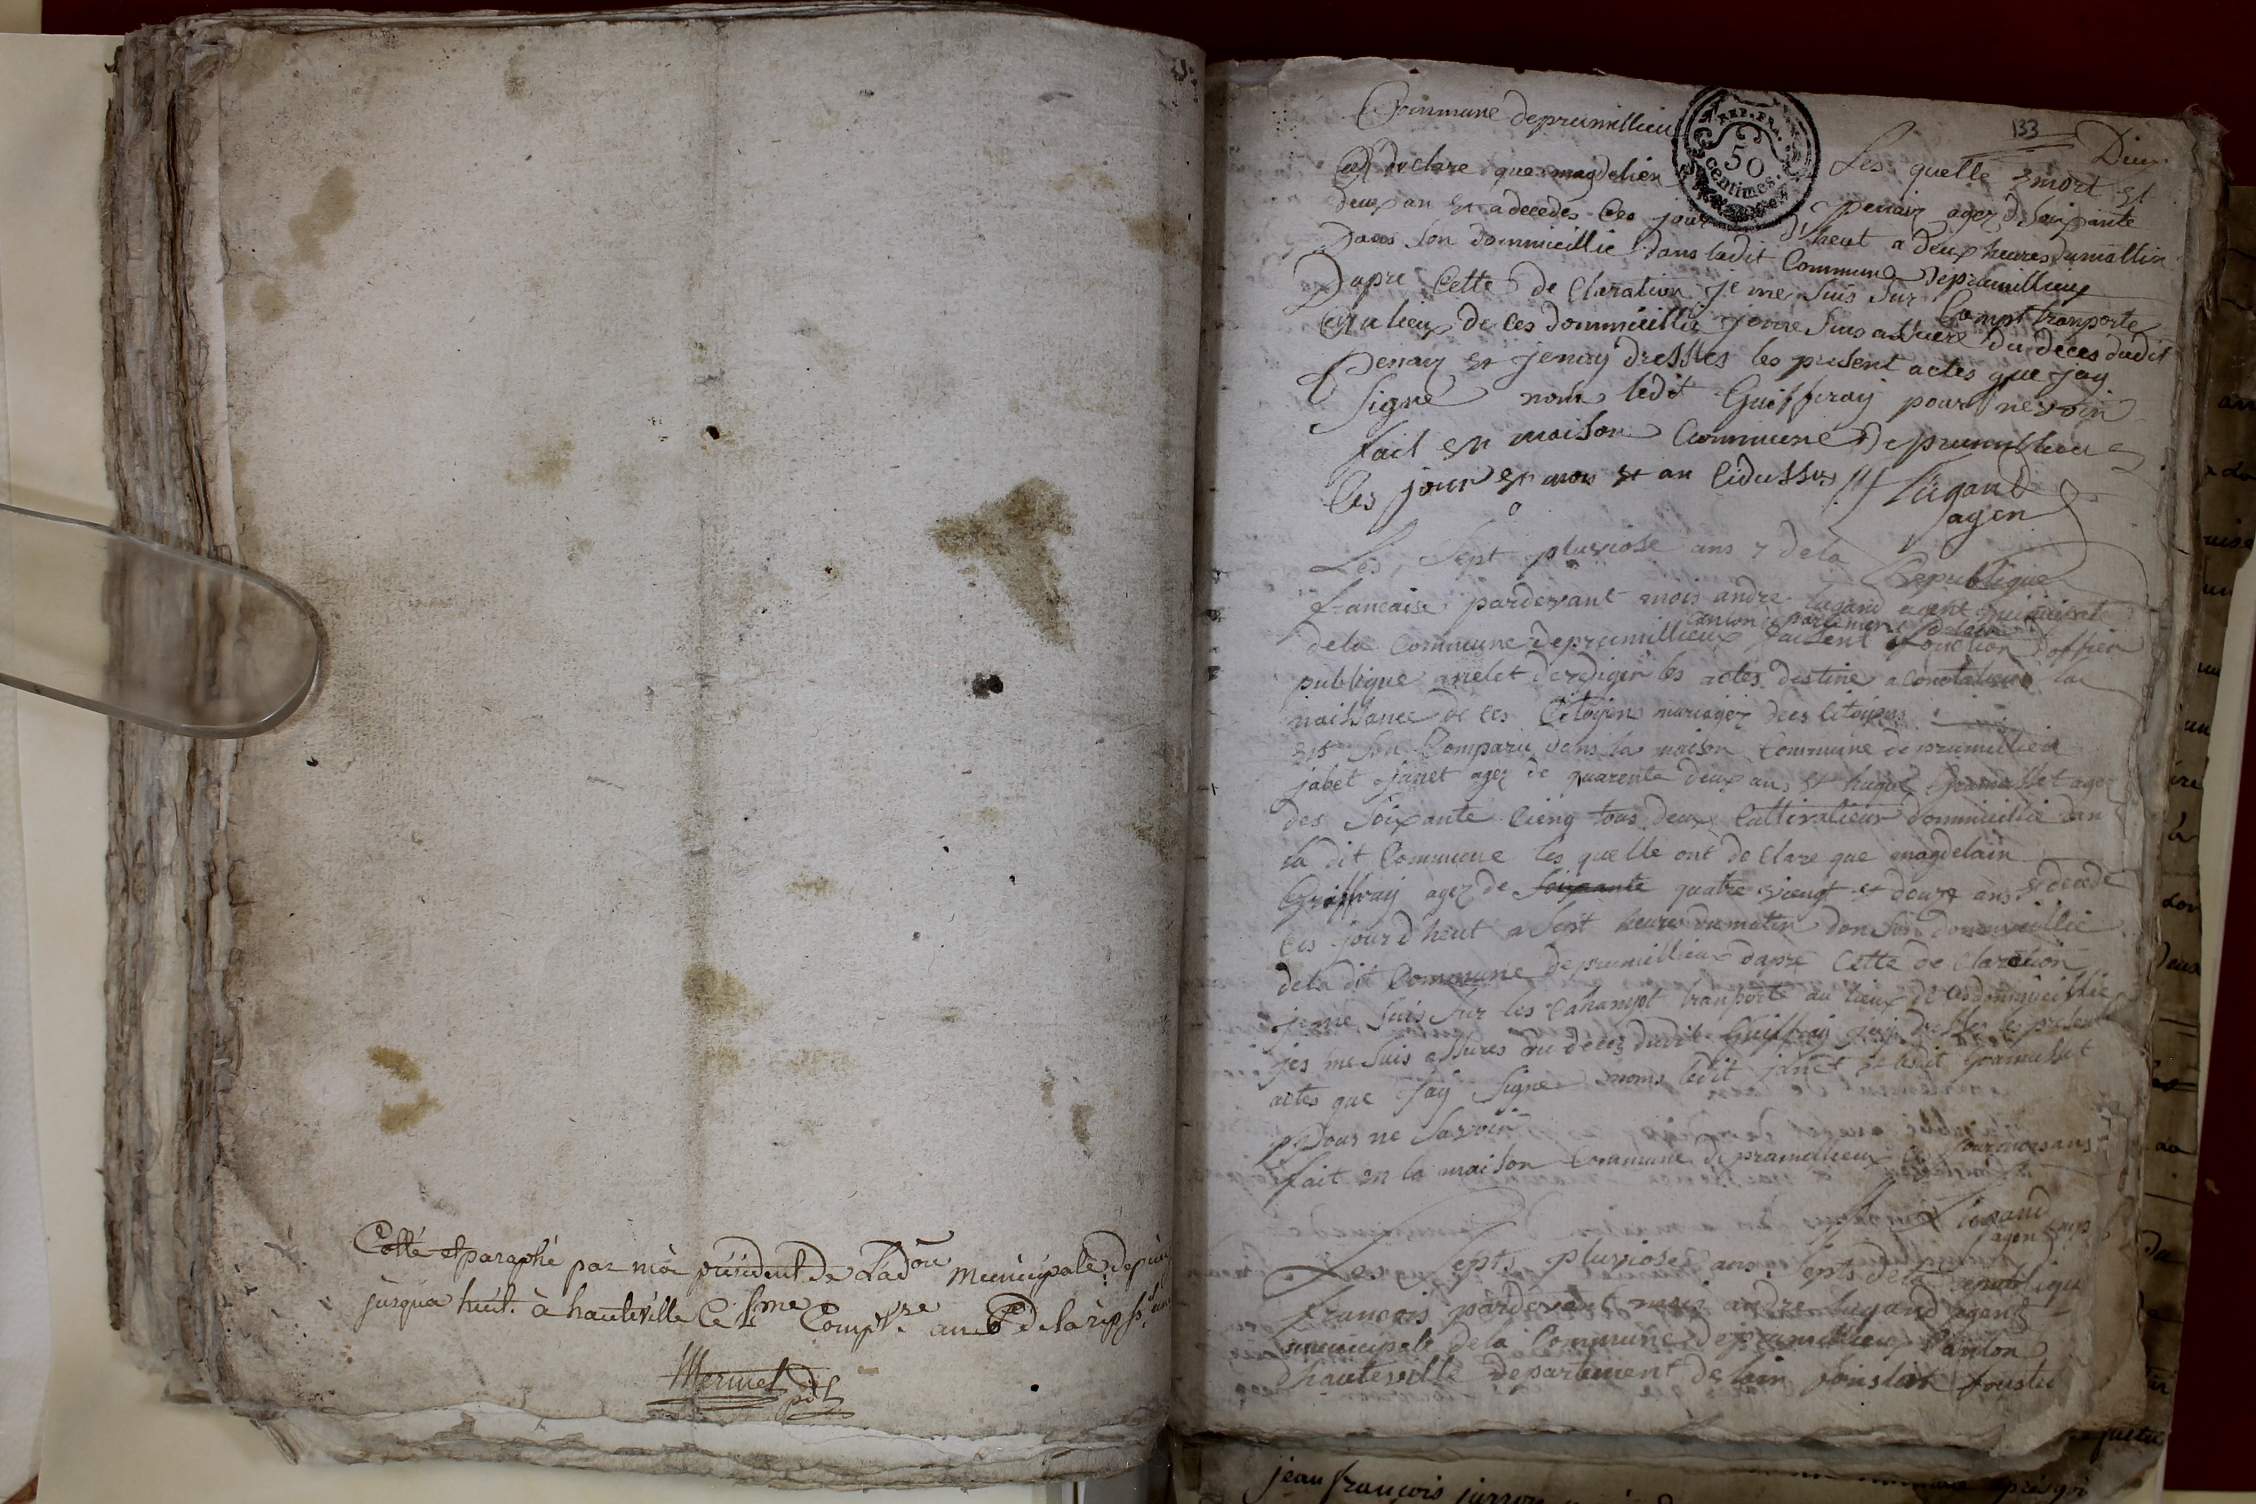 Cotté et paraphé par moi président de L'adon municipale depuis un
jusqua huit. à hauteville Ce 5me Compre an 6e de la rép. f.
Mermet pdt
133
Deux
REP. FRA.
50
centimes.
Commune de prumillieu Les quelle mort et
declare que magdelien penay agez d soixante
deux an et a decedes Ces jour d'heut a deux heures du mattin
Dans son dommicillie dans ladit Commune de prumillieux
Dapre Cette de Claration je me suis sur Compt tranporte
au lieux de ces dommicillie je me suis assure du deces dudit
penay et jenay dresses les present actes que jay
signé nom ledit Guiffray pour ne
fait en maison Commune de prumillieu
Les jour et mois et an cidessus Lugand
agen
Les sept pluviose ans 7 de la Republique
francaise pardevant mois andre Lugand agent
canton
de la Commune de prumillieux faisent fonction doffier
publique de redigir les actes destine a la
naissance de ces Citoyen mariagez dees citoyens
son Comparu dans la maison Commune de prumillieu
jabet janet agez de quarente deux ans et hugue agez
des soixante cienq tous deux Cultivatieur dommicillie dan
la dit Commune les quelle ont de Clare que magdelain
Guiffray agez de soixante quatre viengt et douze ans et decede
Ces jour d heut a sept heures du matin don son dommicillie
de la dit Commune de prumillieux dapre Cette de Claration
je me suis sur les Cahampt tranporte au lieux de ces dommicillie
jes me suis assures du deces dudit Guiffray jay dresses les present
actes que jay signe nom ledit janet et ledit
pour ne savoir
fait en la maison Commune de prumillieux les jour mois ans
Lugand
agen
Le septs pluviose ans septs de la republique
francois pardevant mois andre lugand agent
municipale de la Commune de prumillieux Canton
dhauteville departement de lain
jean françois